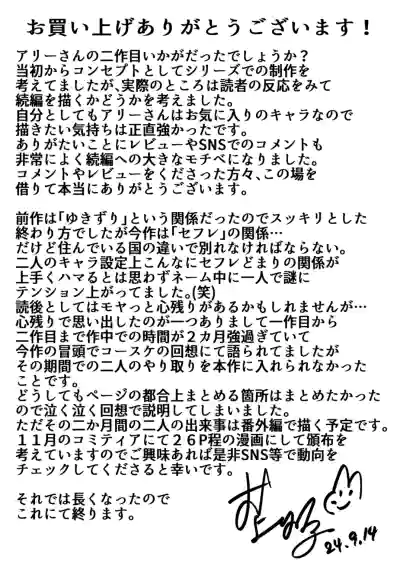 お買い上げありがとうございます！
アリーさんの二作目いかがだったでしょうか？
当初からコンセプトとしてシリーズでの制作を
考えてましたが、実際のところは読者の反応をみて
続編を描くかどうかを考えました。
自分としてもアリーさんはお気に入りのキャラなので
描きたい気持ちは正直強かったです。
ありがたいことにレビューやSNSでのコメントも
非常によく続編への大きなモチベになりました。
コメントやレビューをくださった方々、この場を
借りて本当にありがとうございます。
前作は「ゆきずり」という関係だったのでスッキリとした
終わり方でしたが今作は「セフレ」の関係…
だけど住んでいる国の違いで別れなければならない。
二人のキャラ設定上こんなにセフレどまりの関係が
上手くハマるとは思わずネーム中に一人で謎に
テンション上がってました。(笑)
読後としてはモヤっと心残りがあるかもしれませんが…
心残りで思い出したのが一つありまして一作目から
二作目まで作中での時間が２カ月強過ぎていて
今作の冒頭でコースケの回想にて語られてましたが
その期間での二人のやり取りを本作に入れられなかった
ことです。
どうしてもページの都合上まとめる箇所はまとめたかった
ので泣く泣く回想で説明してしまいました。
ただその二か月間の二人の出来事は番外編で描く予定です。
１１月のコミティアにて２６P程の漫画にして頒布を
考えていますのでご興味あれば是非SNS等で動向を
チェックしてくださると幸いです。
それでは長くなったので
これにて終ります。
24.9.14